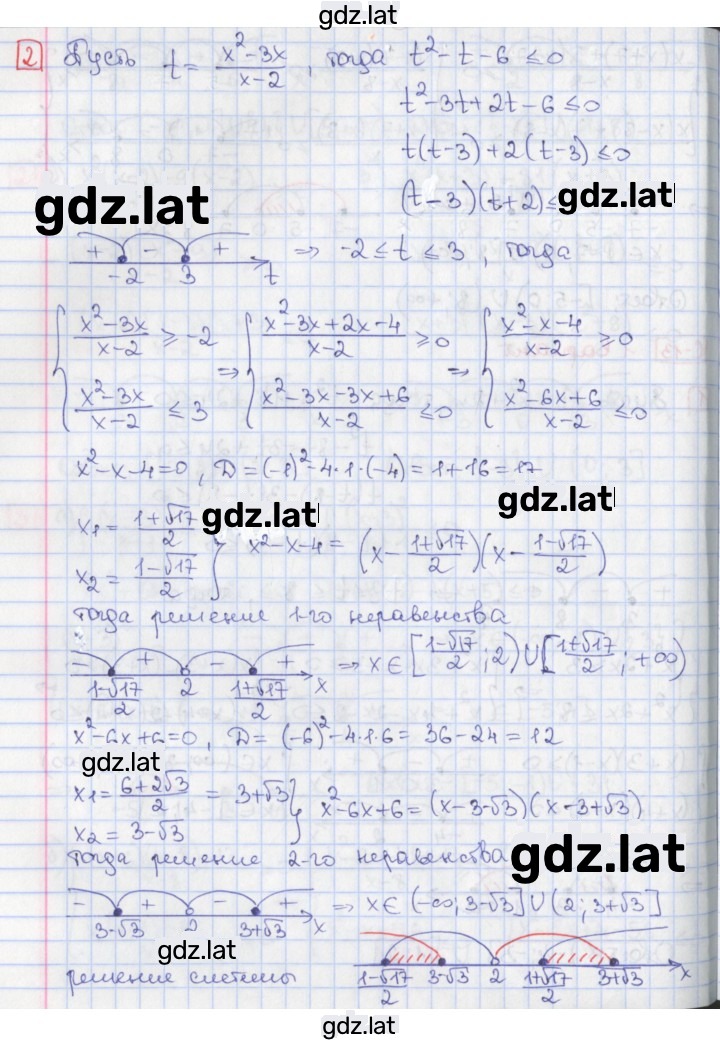 gdz.lat
2 Пусть t = (x² - 3x)/(x - 2), тогда t² - t - 6 ≤ 0
t² - 3t + 2t - 6 ≤ 0
t(t - 3) + 2(t - 3) ≤ 0
(t - 3)(t + 2) ≤ gdz.lat
gdz.lat
+ - +
-2 3 t
⇒ -2 ≤ t ≤ 3, тогда
{ (x² - 3x)/(x - 2) ≥ -2 ⇒ { (x² - 3x + 2x - 4)/(x - 2) ≥ 0 ⇒ { (x² - x - 4)/(x - 2) ≥ 0
(x² - 3x)/(x - 2) ≤ 3 (x² - 3x - 3x + 6)/(x - 2) ≤ 0 (x² - 6x + 6)/(x - 2) ≤ 0
x² - x - 4 = 0, D = (-1)² - 4·1·(-4) = 1 + 16 = 17
gdz.lat
x₁ = (1 + √17)/2 gdz.lat
x₂ = (1 - √17)/2 } x² - x - 4 = (x - (1 + √17)/2)(x - (1 - √17)/2)
тогда решение 1-го неравенства
- + - +
(1 - √17)/2 2 (1 + √17)/2 x
⇒ x ∈ [(1 - √17)/2; 2) ∪ [(1 + √17)/2; +∞)
x² - 6x + 6 = 0, D = (-6)² - 4·1·6 = 36 - 24 = 12
gdz.lat
x₁ = (6 + 2√3)/2 = 3 + √3 } x² - 6x + 6 = (x - 3 - √3)(x - 3 + √3)
x₂ = 3 - √3
тогда решение 2-го неравенства gdz.lat
- + - +
3 - √3 2 3 + √3 x
⇒ x ∈ (-∞; 3 - √3] ∪ (2; 3 + √3]
gdz.lat
решение системы
(1 - √17)/2 3 - √3 2 (1 + √17)/2 3 + √3 x
gdz.lat